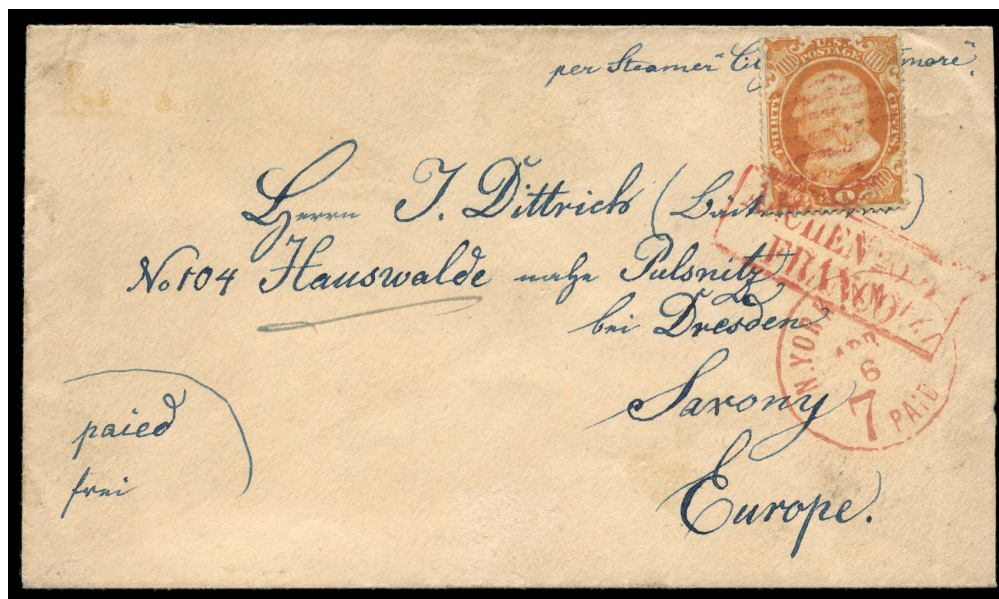 per Steamer "
U.S.
POSTAGE
THIRTY
CENTS
Herrn J. Dittrich (
No 104 Hauswalde nahe Pulsnitz
bei Dresden
Saxony
Europe.
paied
frei
FRANCO
N. YORK
APR
6
7
PAID